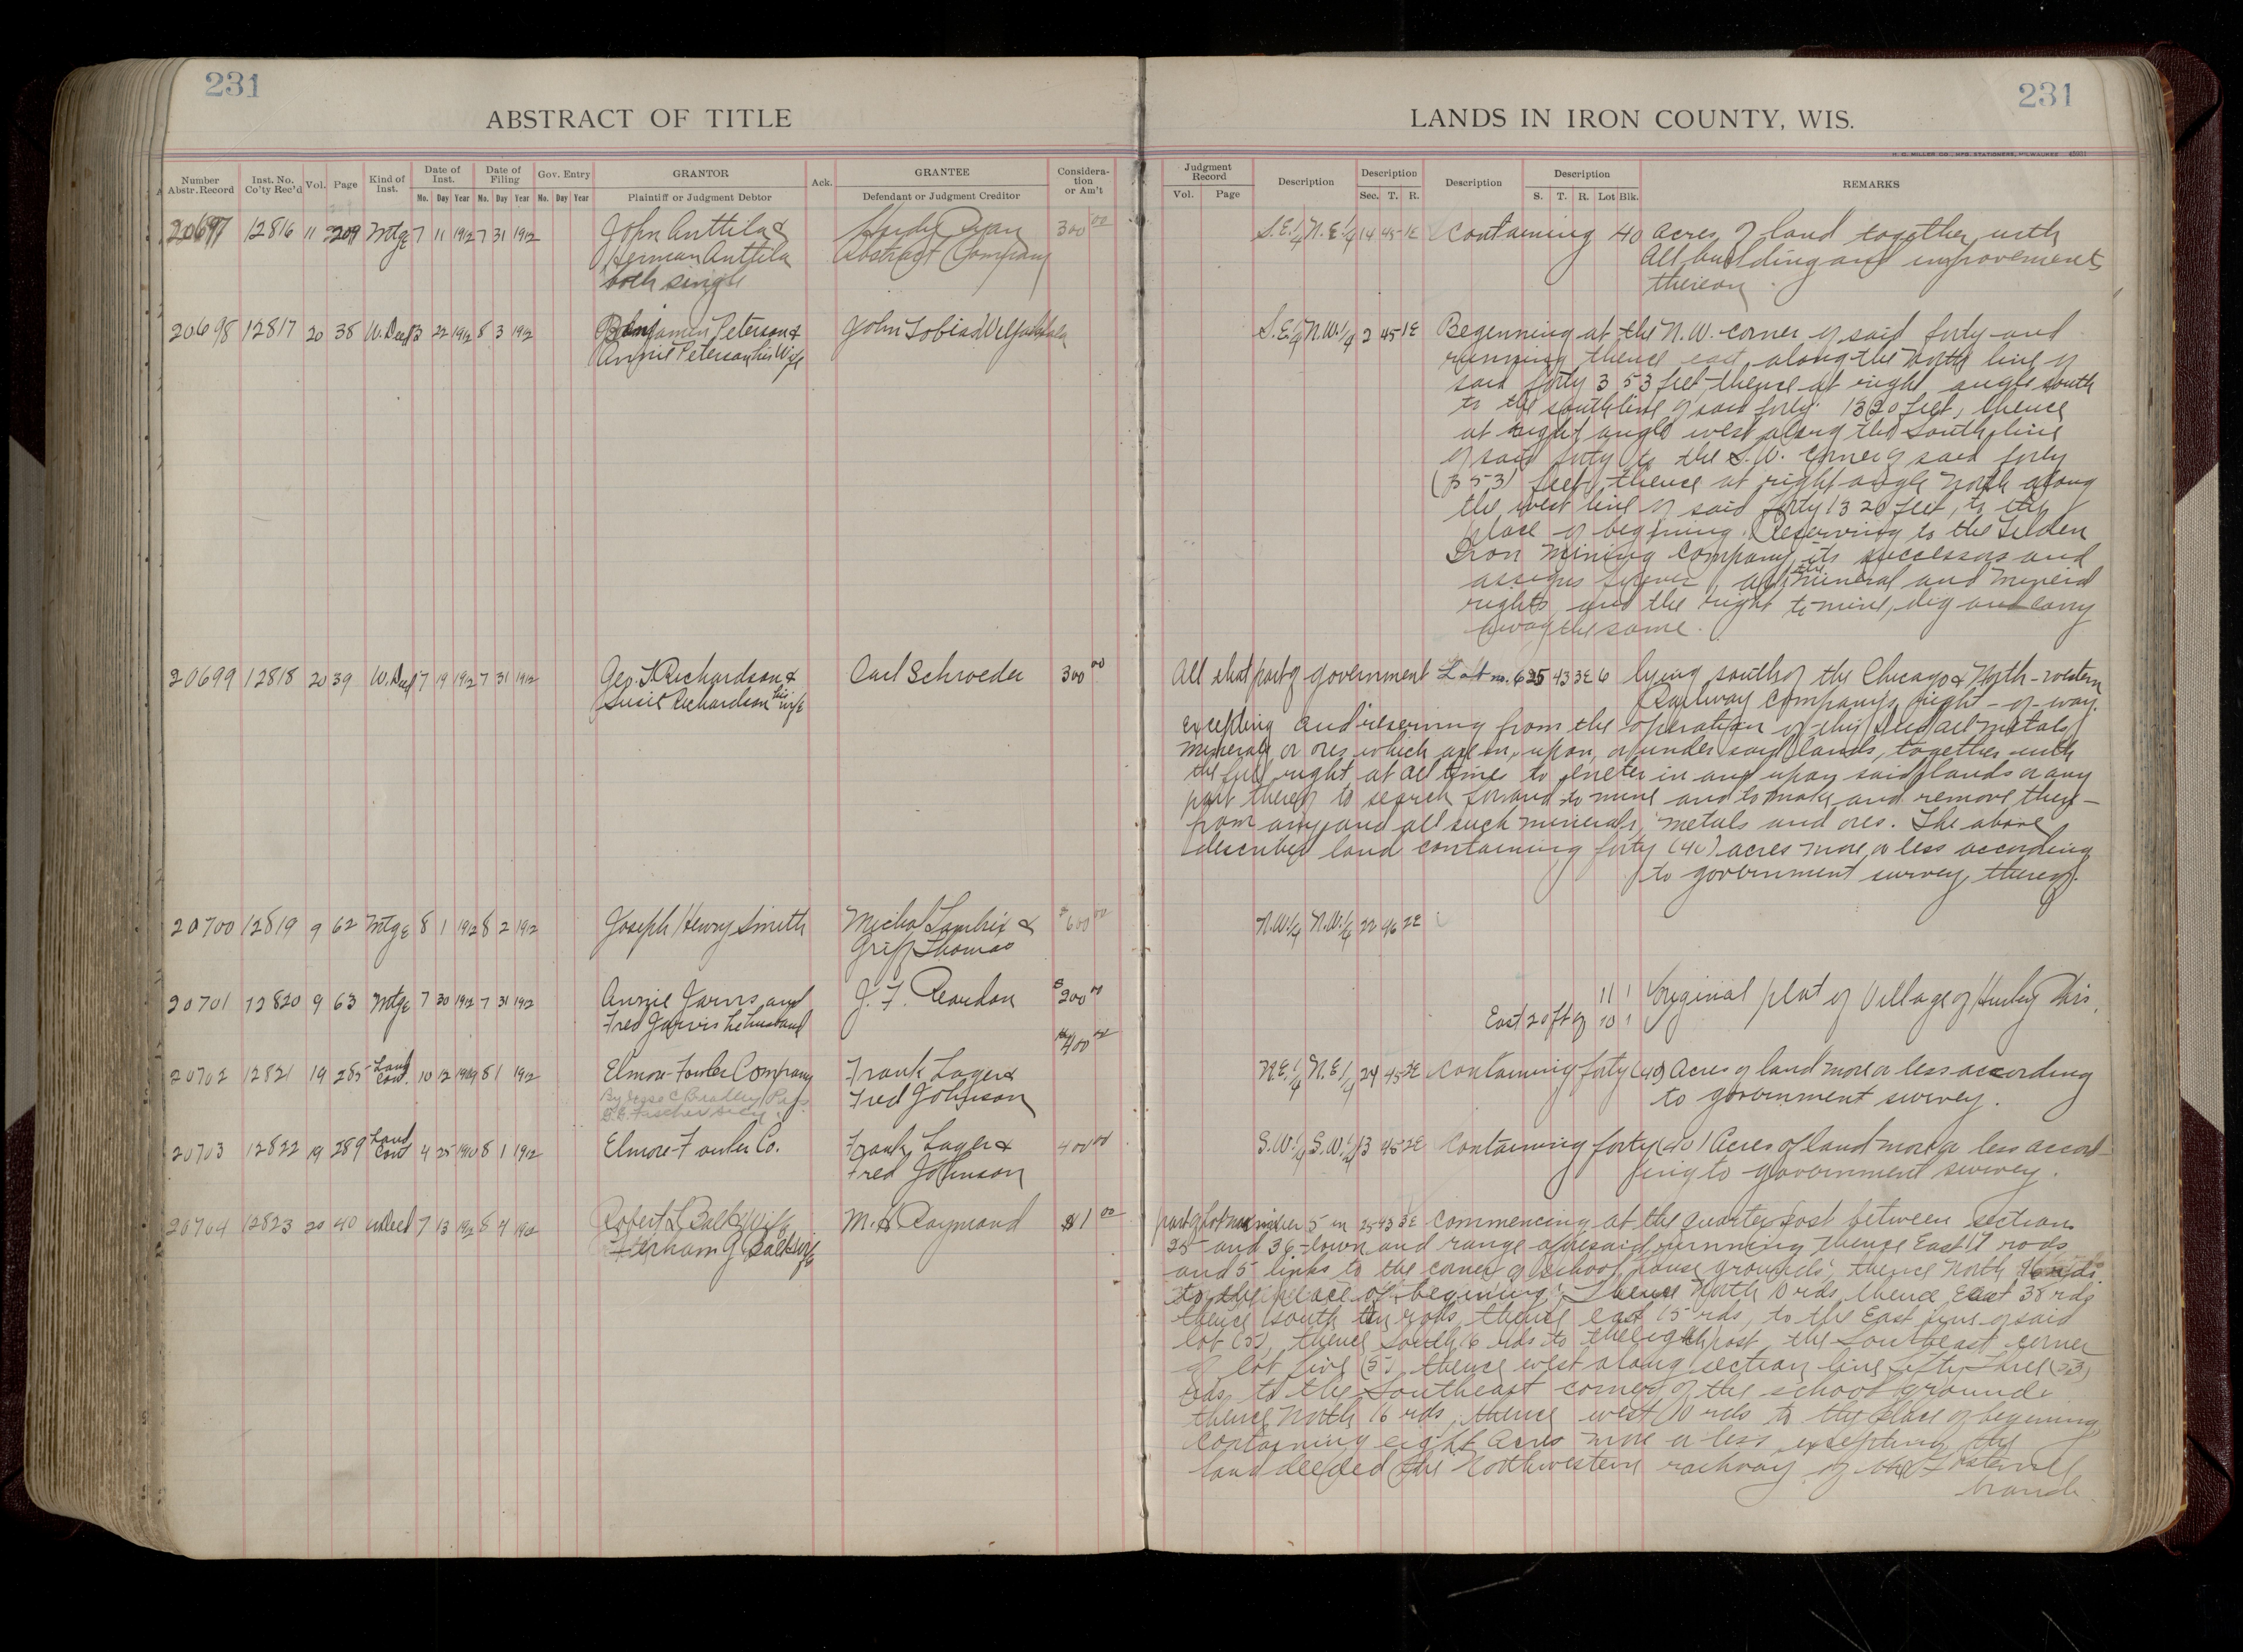 231
ABSTRACT OF TITLE
Number Abstr. Record
Inst. No. Co'ty Rec'd
Vol.
Page
Kind of Inst.
Date of Inst.
Date of Filing
Gov. Entry
GRANTOR
Plaintiff or Judgment Debtor
Ack.
GRANTEE
Defendant or Judgment Creditor
Considera-tion or Am't
Mo. Day Year Mo. Day Year Mo. Day Year
20697 12816 11 209 Mtge 7 11 1912 7 31 1912 John Anttila & 300 00
Herman Anttila Abstract Company
both single
20698 12817 20 38 W. Deed 3 22 1912 8 3 1912 Benjamin Peterson & John Tobias
Annie Peterson his Wife
20699 12818 20 39 W. Deed 7 19 1912 7 31 1912 Geo. T. Richardson & Carl Schroeder 300 00
Susie Richardson his wife
20700 12819 9 62 Mtge 8 1 1912 8 2 1912 Joseph Henry Smith Michal Lambrix & $600 00
Griff Thomas
20701 12820 9 63 Mtge 7 30 1912 7 31 1912 Annie Jarvis and J. F. Reardon $200 00
Fred Jarvis
20702 12821 19 285 Land Cont. 10 12 1909 8 1 1912 Elmore-Fowler Company Frank Lager & $400 00
By Jesse C. Bradley Pres. Fred Johnson
20703 12822 19 289 Land Cont 4 25 1910 8 1 1912 Elmore-Fowler Co. Frank Lager & 400 00
Fred Johnson
20704 12823 20 40 W Deed 7 13 1912 8 4 1912 Robert L. M. A. Raymond $1 00
231
LANDS IN IRON COUNTY, WIS.
H. G. MILLER CO., MFG. STATIONERS, MILWAUKEE
Judgment Record
Vol. Page
Description
Description
Sec. T. R.
Description
Description
S. T. R. Lot Blk.
REMARKS
S.E.1/4 N.E.1/4 14 45 1E Containing 40 Acres of land together with
All building and improvements
thereon.
S.E.1/4 N.W.1/4 2 45 1E Beginning at the N.W. corner of said forty and
running thence east along the north line of
said forty 353 feet, thence at right angle south
to the southline of said forty 1320 feet, thence
at right angle west along the South line
of said forty to the S.W. corner of said forty
(353) feet, thence at right angle North along
the west line of said forty 1320 feet, to the
place of beginning. Reserving to the Tilden
Iron Mining Company, its successors and
assigns forever, all the mineral and mineral
rights and the right to mine, dig and carry
away the same.
All that part of government Lot no. 6 25 43 3E 6 lying south of the Chicago & North-western
Railway Company's right-of-way.
excepting and reserving from the operation of this deed all metals
minerals or ores which are in, upon, or under said lands, together with
the full right at all times to eneter in and upon said lands or any
part thereof to search for and to mine and to make and remove there-
from any and all such minerals, metals and ores. The above
described land containing forty (40) acres more or less according
to government survey thereof.
N.W.1/4 N.W.1/4 22 46 2E
11 1 Original plat of Village of Hurley Wis.
East 20 ft of 10 1
N.E.1/4 N.E.1/4 24 45 2E Containing forty (40) Acres of land more or less according
to government survey.
S.W.1/4 S.W.1/4 13 45 2E Containing forty (40) Acres of land more or less accord-
ing to government survey.
part of Lot number 5 in 25 43 3E Commencing at the quarter post between section
25 and 36 town and range aforesaid, running thence East 17 rods
and 5 links to the corner of school house grounds thence North 16 rods
to the place of begining. Thence North 10 rds, thence East 38 rds
thence south ten rods, thence east 15 rds, to the East line of said
lot (5), thence South 16 rds to the eighth post, the Southeast corner
of lot five (5), thence west along section line fifty three (53)
rds, to the Southeast corner of the school ground
thence North 16 rds, thence west 10 rds to the place of begening
containing eight Acres more or less, excepting the
land deeded the Northwestern railway
branch.